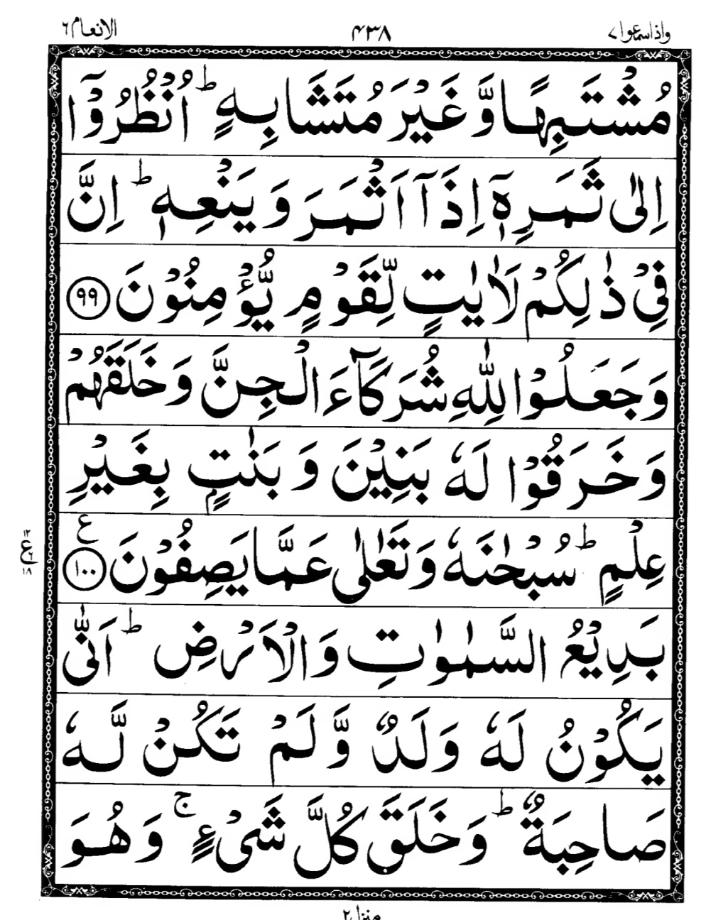 واذاسمعوا ٧ ٤٣٨ الانعام ٦
مُشْتَبِهًا وَّ غَيْرَ مُتَشَابِهٍ ؕ اُنْظُرُوْۤا
اِلٰى ثَمَرِهٖۤ اِذَاۤ اَثْمَرَ وَ يَنْعِهٖ ؕ اِنَّ
فِیْ ذٰلِكُمْ لَاٰیٰتٍ لِّقَوْمٍ یُّؤْمِنُوْنَ ﴿٩٩﴾
وَ جَعَلُوْا لِلّٰهِ شُرَكَآءَ الْجِنَّ وَ خَلَقَهُمْ
وَ خَرَقُوْا لَهٗ بَنِیْنَ وَ بَنٰتٍۭ بِغَیْرِ
عِلْمٍ ؕ سُبْحٰنَهٗ وَ تَعٰلٰى عَمَّا یَصِفُوْنَ ﴿١٠٠﴾ ع
١٢
ع
٦
١٨
بَدِیْعُ السَّمٰوٰتِ وَ الْاَرْضِ ؕ اَنّٰى
یَكُوْنُ لَهٗ وَلَدٌ وَّ لَمْ تَكُنْ لَّهٗ
صَاحِبَةٌ ؕ وَ خَلَقَ كُلَّ شَیْءٍ ۚ وَ هُوَ
منزل ٢